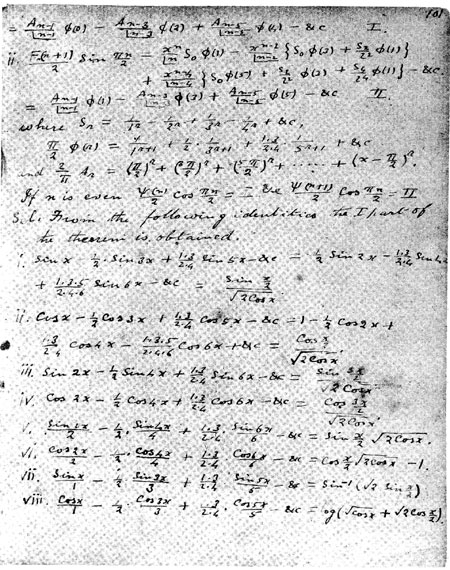 = A_{n-1}/|n-1 φ(0) - A_{n-3}/|n-3 φ(2) + A_{n-5}/|n-5 φ(4) - &c I.
ii. F(n+1)/2 Sin πn/2 - x^n/|n S_0 φ(1) - x^{n-2}/|n-2 {S_0 φ(3) + S_2/2² φ(1)}
+ x^{n-4}/|n-4 {S_0 φ(5) + S_2/2² φ(3) + S_4/2⁴ φ(1)} - &c.
= A_{n-1}/|n-1 φ(1) - A_{n-3}/|n-3 φ(3) + A_{n-5}/|n-5 φ(5) - &c II.
where S_n = 1/1^n - 1/2^n + 1/3^n - 1/4^n + &c,
π/2 φ(n) = 1/1^{n+1} + 1/2 · 1/3^{n+1} + 1·3/2·4 · 1/5^{n+1} + &c
and 2/π A_n = (π/2)^n + (3π/2)^n + (5π/2)^n + ..... + (x - π/2)^n.
If n is even ψ(n)/2 cos πn/2 = I & ψ(n+1)/2 Cos πn/2 = II
Sol. From the following identities the I part of
the theorem is obtained.
i. Sin x - 1/2 · Sin 3x + 1·3/2·4 Sin 5x - &c = 1/2 Sin 2x - 1·3/2·4 Sin 4x
+ 1·3·5/2·4·6 Sin 6x - &c = Sin x/2 / √2Cosx.
ii. Cosx - 1/2 Cos 3x + 1·3/2·4 Cos 5x - &c = 1 - 1/2 Cos 2x +
1·3/2·4 Cos 4x - 1·3·5/2·4·6 Cos 6x + &c = Cos x/2 / √2Cosx.
iii. Sin 2x - 1/2 Sin 4x + 1·3/2·4 Sin 6x - &c = Sin 3x/2 / √2Cosx.
iv. Cos 2x - 1/2 Cos 4x + 1·3/2·4 Cos 6x - &c = Cos 3x/2 / √2Cosx.
v. Sin 2x/2 - 1/2 · Sin 4x/4 + 1·3/2·4 · Sin 6x/6 - &c = Sin x/2 √2Cosx.
vi. Cos 2x/2 - 1/2 · Cos 4x/4 + 1·3/2·4 · Cos 6x/6 - &c = Cos x/2 √2Cosx - 1.
vii. Sin x/1 - 1/2 · Sin 3x/3 + 1·3/2·4 · Sin 5x/5 - &c = Sin⁻¹(√2 Sin x/2)
viii. Cosx/1 - 1/2 · Cos 3x/3 + 1·3/2·4 · Cos 5x/5 - &c = og(√Cosx + √2Cos x/2).